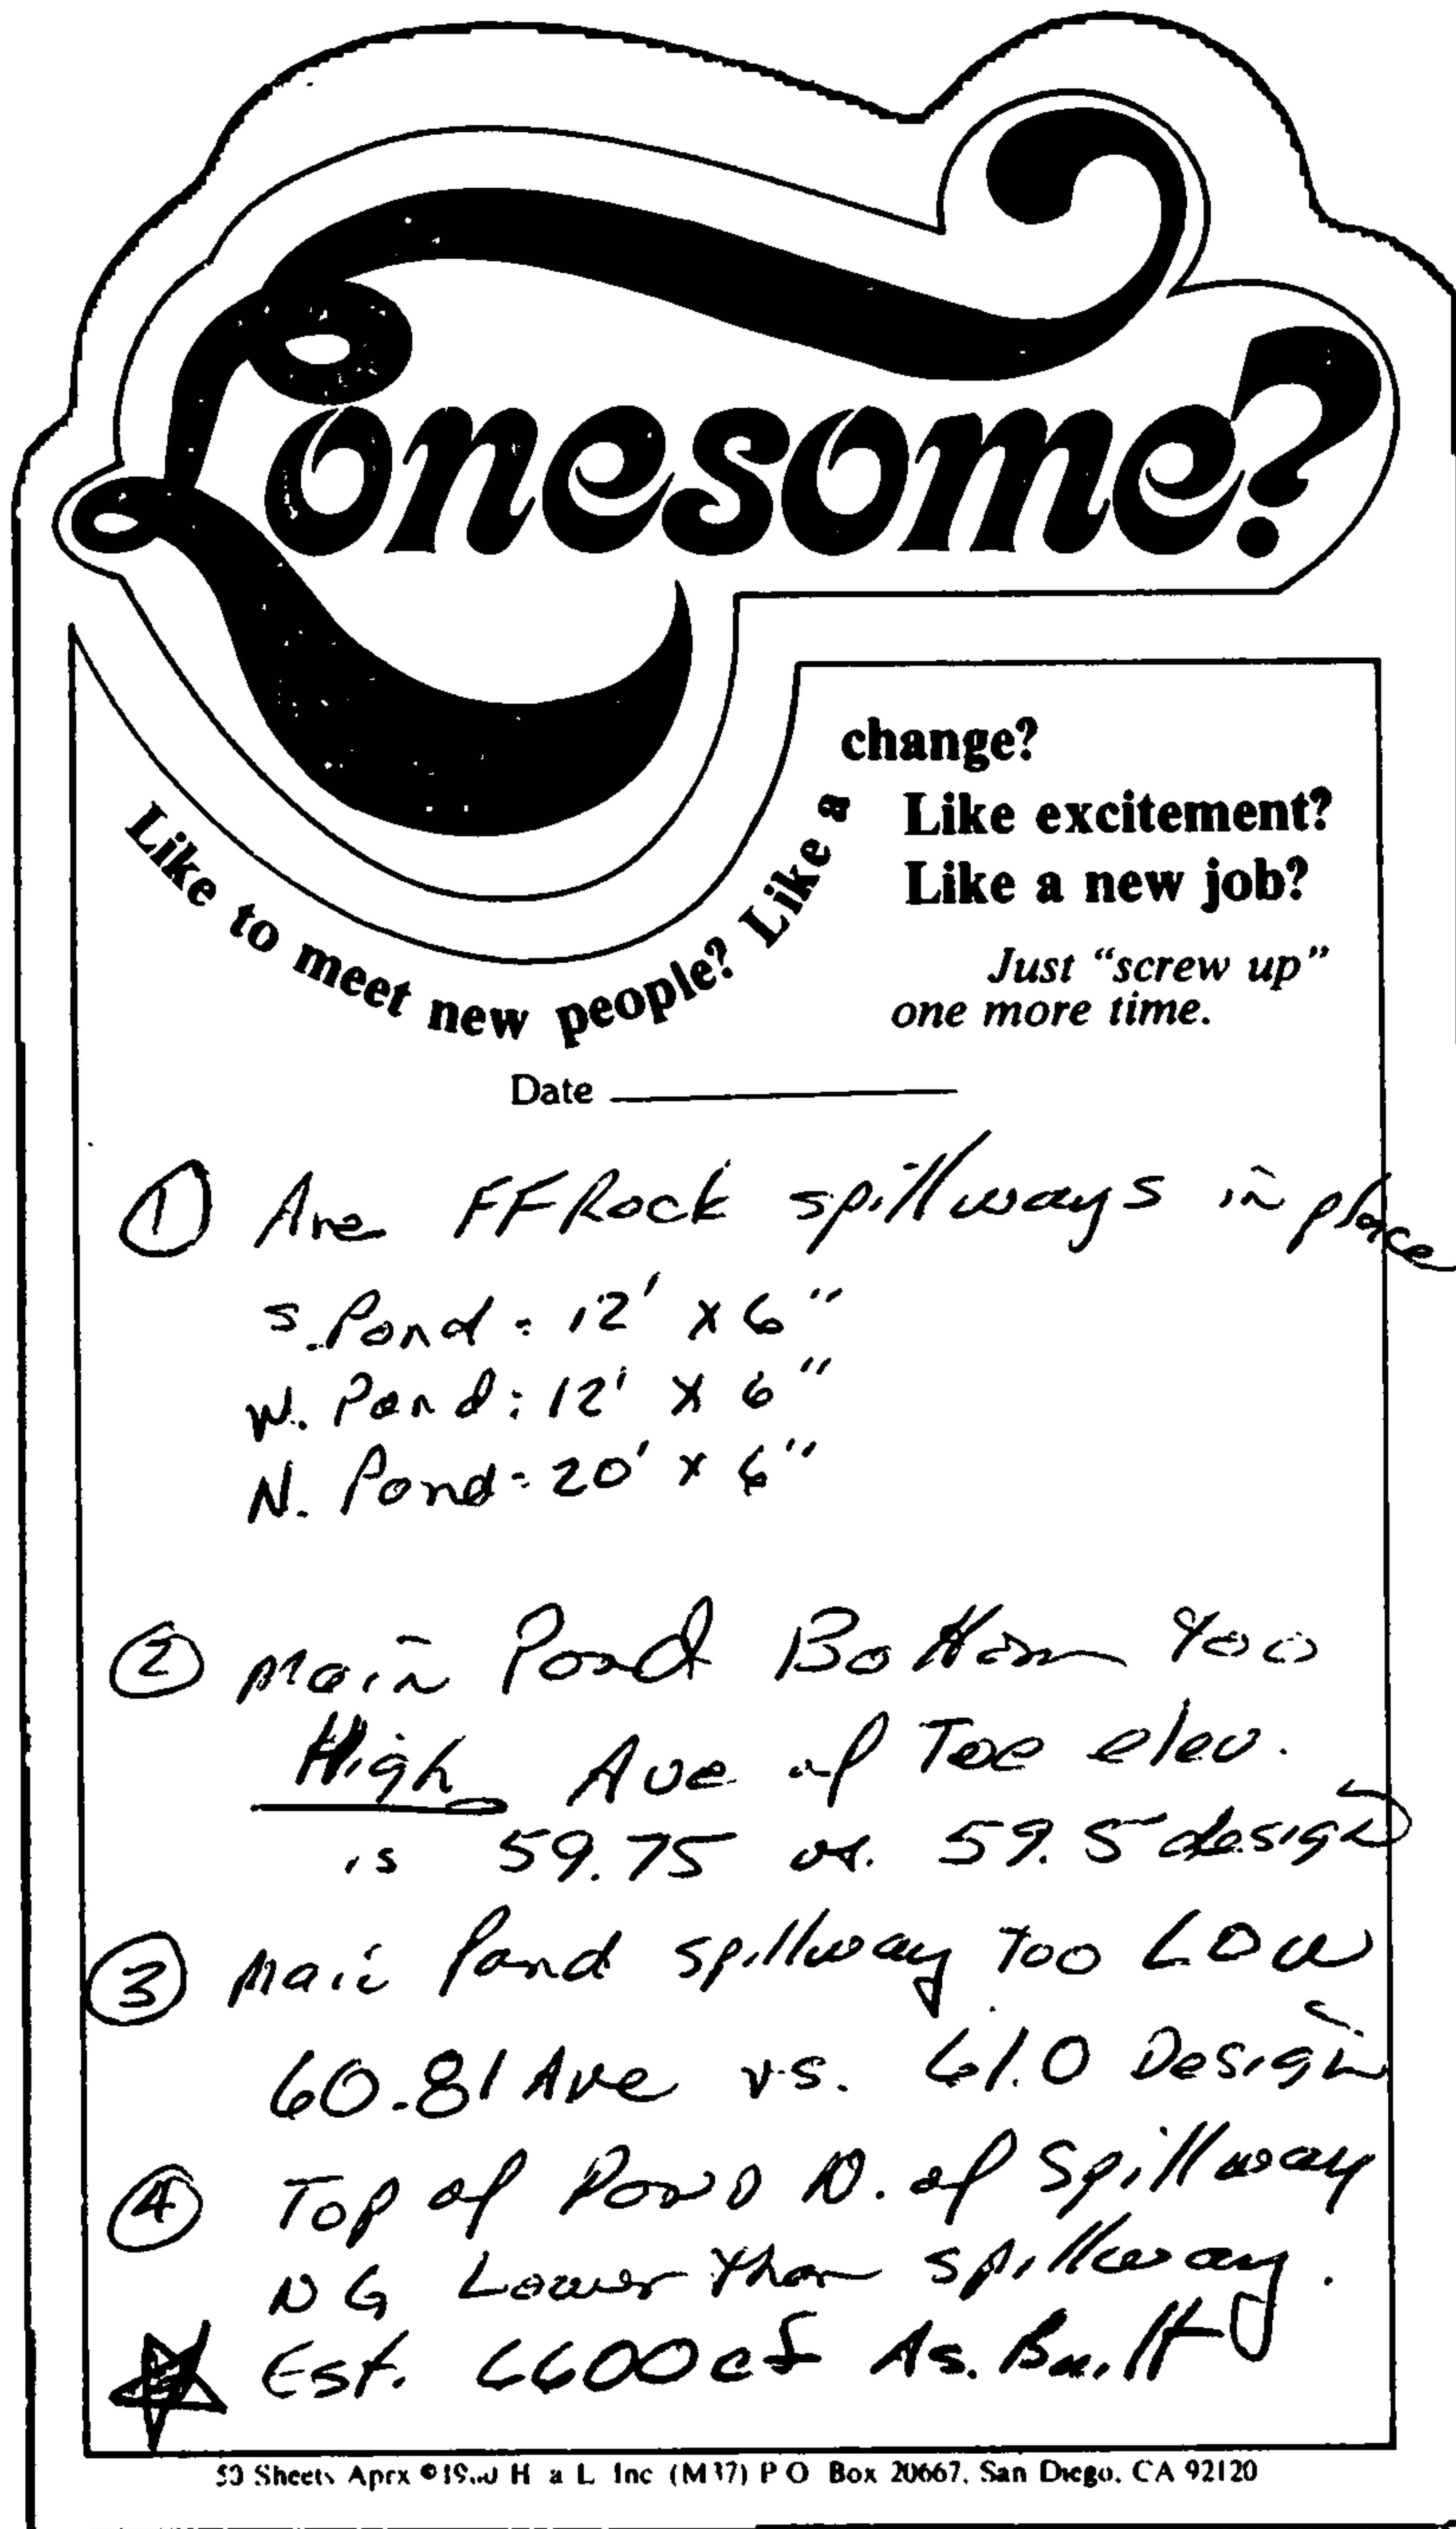 Lonesome?
Like to meet new people? Like a change?
Like excitement?
Like a new job?
Just "screw up"
one more time.
Date
① Are FF Rock spillways in place
S. Pond = 12' x 6"
W. Pond: 12' x 6"
N. Pond = 20' x 6"
② Main Pond Bottom too
High Ave of Toe elev.
is 59.75 vs. 59.5 design
③ Main Pond spillway too Low
60.81 Ave vs. 61.0 Design
④ Top of Pond N. of Spillway
NG Lower than spillway.
Est. 6600 cf As. Built
50 Sheets Aprx © H a L Inc (M37) P O Box 20667, San Diego, CA 92120